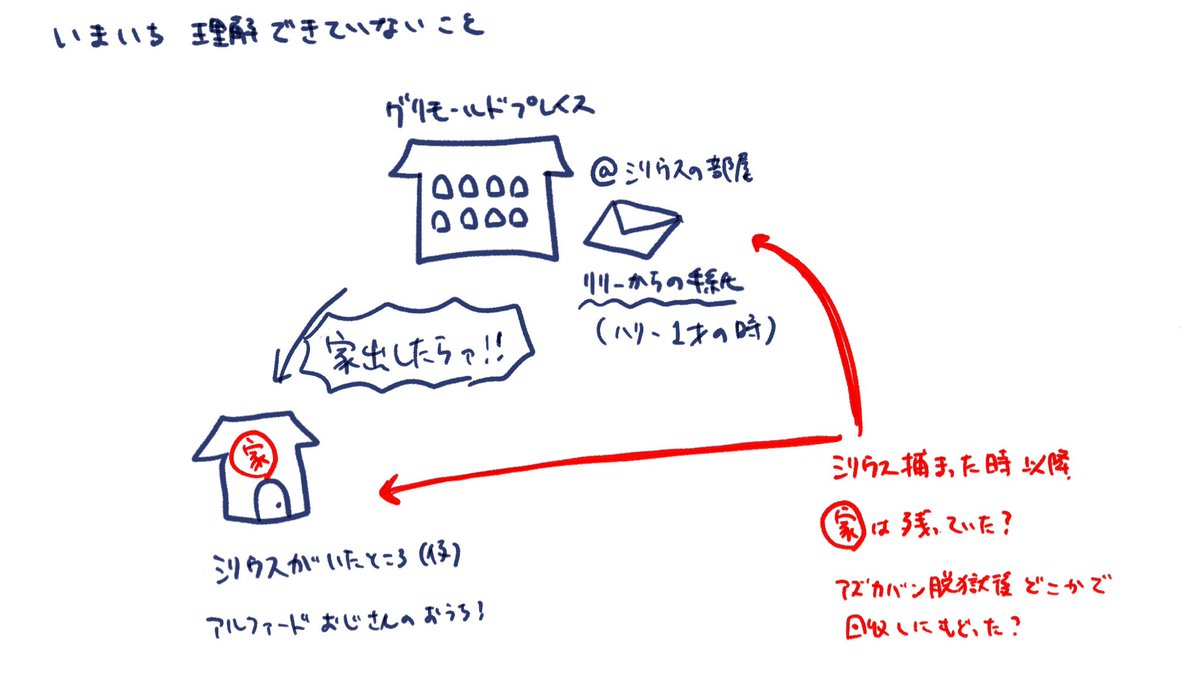 いまいち 理解できていないこと
グリモールドプレイス
@シリウスの部屋
リリーからの手紙
(ハリー1才の時)
家出したらァ!!
家
シリウスがいたところ(仮)
アルファードおじさんのおうち!
シリウス捕まった時以降
家は残っていた?
アズカバン脱獄後どこかで
回収しにもどった?